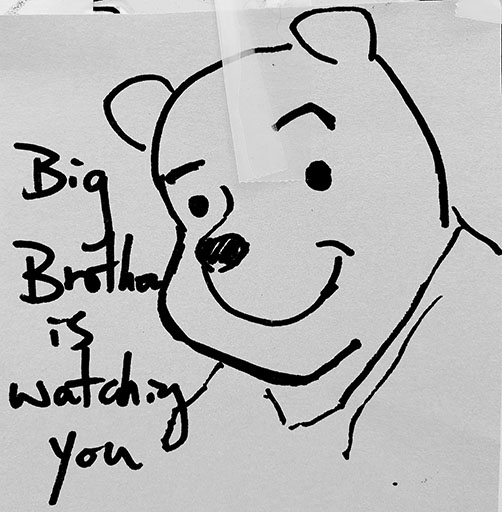 Big
Brotha
is
watching
you